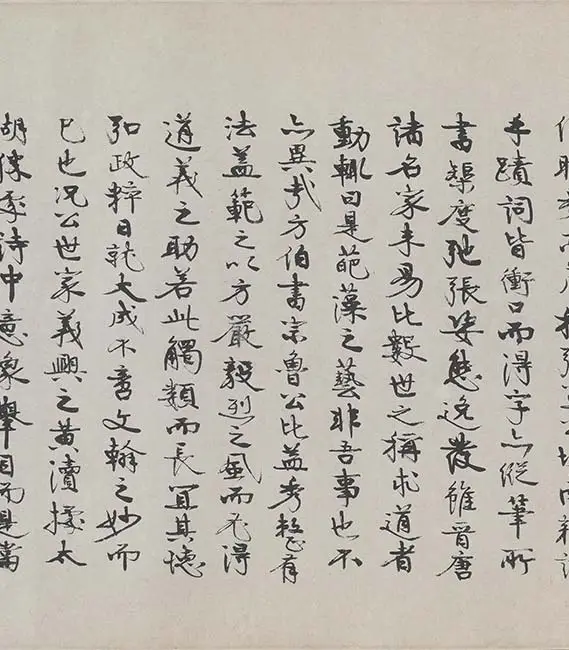 手蹟詞皆衝口而得字亦縱筆所
書榘度弛張姿態逸發雖晉唐
諸名家未易比數世之稱求道者
動輒曰是葩藻之藝非吾事也不
亦異哉方伯書宗魯公比益考整有
法蓋範之以方嚴毅烈之風而得
道義之助若此觸類而長宜其德
弘政粹日就大成不啻文翰之妙而
已也況公世家義興之黃瀆據太
湖勝處詩中意象舉目而是